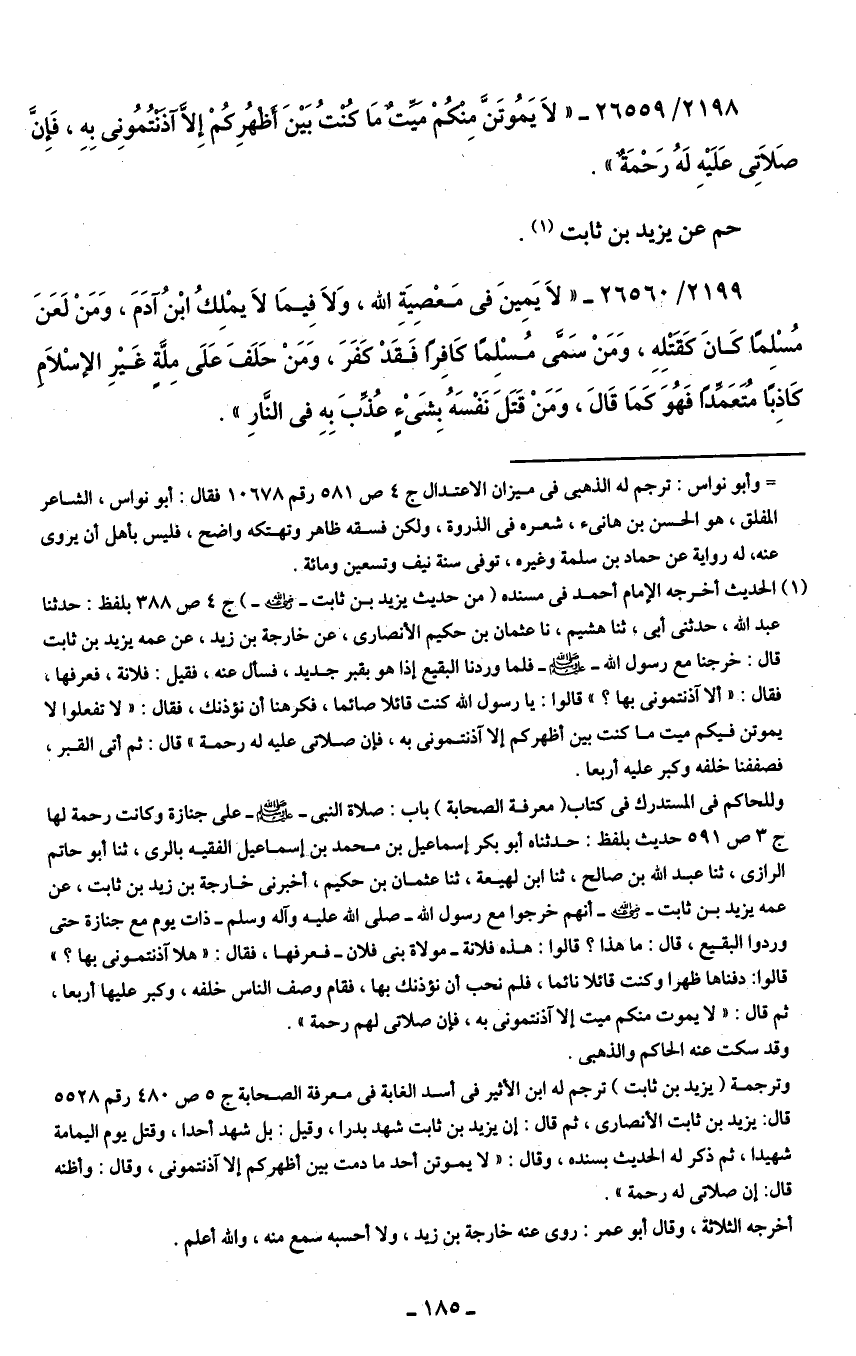 ٢١٩٨/ ٢٦٥٥٩ ـ « لاَ يَمُوتَنَّ مِنْكُمْ مَيِّتٌ مَا كُنْتُ بَيْنَ أَظْهُرِكُمْ إِلاَّ آذَنْتُمُونِى بِهِ ، فَإِنَّ
صَلاَتِى عَلَيْهِ لَهُ رَحْمَةٌ » .
حم عن يزيد بن ثابت (١) .
٢١٩٩/ ٢٦٥٦٠ ـ « لاَ يَمِينَ فى مَعْصِيَةِ الله ، وَلاَ فِيمَا لاَ يمْلِكُ ابْنُ آدَمَ ، وَمَنْ لَعَنَ
مُسْلِمًا كَانَ كَقَتْلِهِ ، وَمَنْ سَمَّى مُسْلِمًا كَافِرًا فَقَدْ كَفَرَ ، وَمَنْ حَلَفَ عَلَى مِلَّةٍ غَيْرِ الإِسْلاَمِ
كَاذِبًا مُتَعَمِّدًا فَهُوَ كَمَا قَالَ ، وَمَنْ قَتَلَ نَفْسَهُ بِشَىْءٍ عُذِّبَ بِهِ فى النَّارِ » .
= وأبو نواس : ترجم له الذهبى فى ميزان الاعتدال ج ٤ ص ٥٨١ رقم ١٠٦٧٨ فقال : أبو نواس ، الشاعر
المفلق ، هو الحسن بن هانىء ، شعره فى الذروة ، ولكن فسقه ظاهر وتهتكه واضح ، فليس بأهل أن يروى
عنه، له رواية عن حماد بن سلمة وغيره ، توفى سنة نيف وتسعين ومائة .
(١) الحديث أخرجه الإمام أحمد فى مسنده ( من حديث يزيد بن ثابت ـ رضي الله عنه ـ ) ج ٤ ص ٣٨٨ بلفظ : حدثنا
عبد الله ، حدثنى أبى ، ثنا هشيم ، نا عثمان بن حكيم الأنصارى ، عن خارجة بن زيد ، عن عمه يزيد بن ثابت
قال : خرجنا مع رسول الله ـ ﷺ ـ فلما وردنا البقيع إذا هو بقبر جديد ، فسأل عنه ، فقيل : فلانة ، فعرفها ،
فقال : « ألا آذنتمونى بها ؟ » قالوا : يا رسول الله كنت قائلا صائما ، فكرهنا أن نؤذنك ، فقال : « لا تفعلوا لا
يموتن فيكم ميت ما كنت بين أظهركم إلا آذنتمونى به ، فإن صلاتى عليه له رحمة » قال : ثم أتى القبر ،
فصففنا خلفه وكبر عليه أربعا .
وللحاكم فى المستدرك فى كتاب( معرفة الصحابة ) باب : صلاة النبى ـ ﷺ ـ على جنازة وكانت رحمة لها
ج ٣ ص ٥٩١ حديث بلفظ : حدثناه أبو بكر إسماعيل بن محمد بن إسماعيل الفقيه بالرى ، ثنا أبو حاتم
الرازى ، ثنا عبد الله بن صالح ، ثنا ابن لهيعة ، ثنا عثمان بن حكيم ، أخبرنى خارجة بن زيد بن ثابت ، عن
عمه يزيد بن ثابت ـ رضي الله عنه ـ أنهم خرجوا مع رسول الله ـ صلى الله عليه وآله وسلم ـ ذات يوم مع جنازة حتى
وردوا البقيع ، قال : ما هذا ؟ قالوا : هذه فلانة ـ مولاة بنى فلان ـ فعرفها ، فقال : « هلا آذنتمونى بها ؟ »
قالوا: دفناها ظهرا وكنت قائلا نائما ، فلم نحب أن نؤذنك بها ، فقام وصف الناس خلفه ، وكبر عليها أربعا ،
ثم قال : « لا يموت منكم ميت إلا آذنتمونى به ، فإن صلاتى لهم رحمة » .
وقد سكت عنه الحاكم والذهبى .
وترجمة ( يزيد بن ثابت ) ترجم له ابن الأثير فى أسد الغابة فى معرفة الصحابة ج ٥ ص ٤٨٠ رقم ٥٥٢٨
قال: يزيد بن ثابت الأنصارى ، ثم قال : إن يزيد بن ثابت شهد بدرا ، وقيل : بل شهد أحدا ، وقتل يوم اليمامة
شهيدا ، ثم ذكر له الحديث بسنده ، وقال : « لا يموتن أحد ما دمت بين أظهركم إلا آذنتمونى ، وقال : وأظنه
قال: إن صلاتى له رحمة » .
أخرجه الثلاثة ، وقال أبو عمر : روى عنه خارجة بن زيد ، ولا أحسبه سمع منه ، والله أعلم .
ـ ١٨٥ ـ